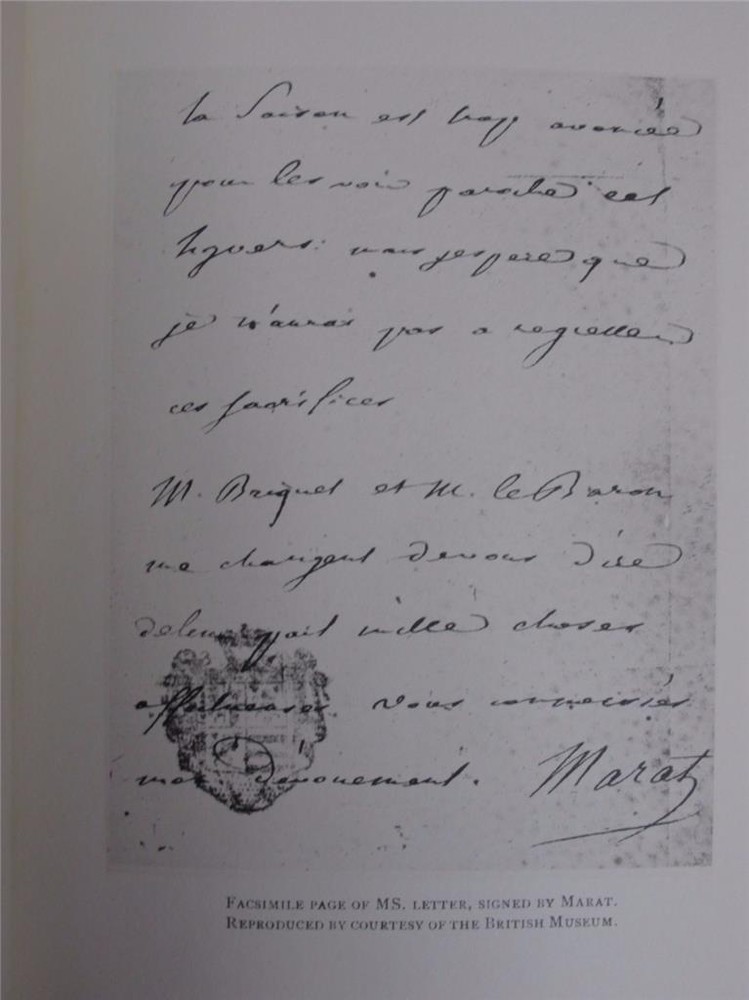 la Saison est trop avancée
pour les voir paroître cet
hyvers: mais jespere que
je n'aurai pas a regretter
ces sacrifices
M. Briquet et M. le Baron
me chargent de vous dire
de leur part mille choses
affectueuses vous connessiés
mon devouement. Marat
FACSIMILE PAGE OF MS. LETTER, SIGNED BY MARAT.
REPRODUCED BY COURTESY OF THE BRITISH MUSEUM.